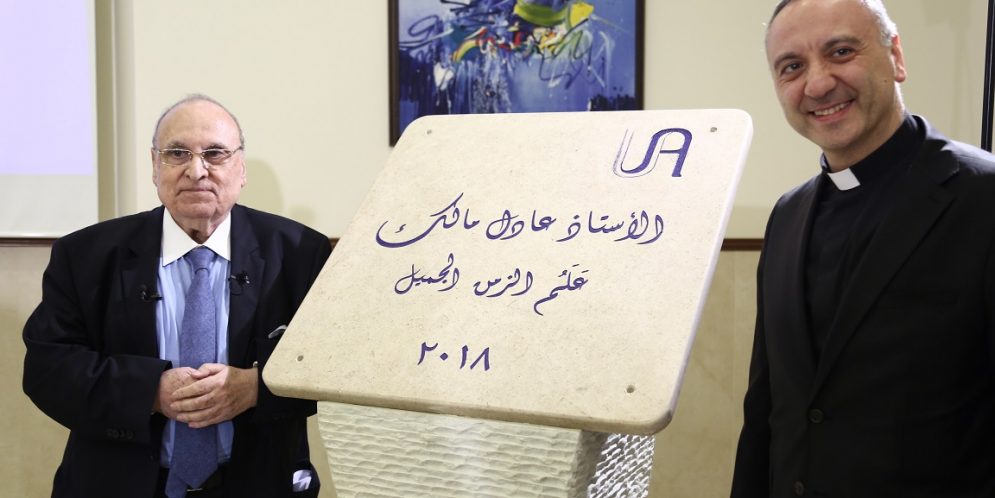 UA
الأستاذ عادل مالك
عَلَم الزمن الجميل
٢٠١٨